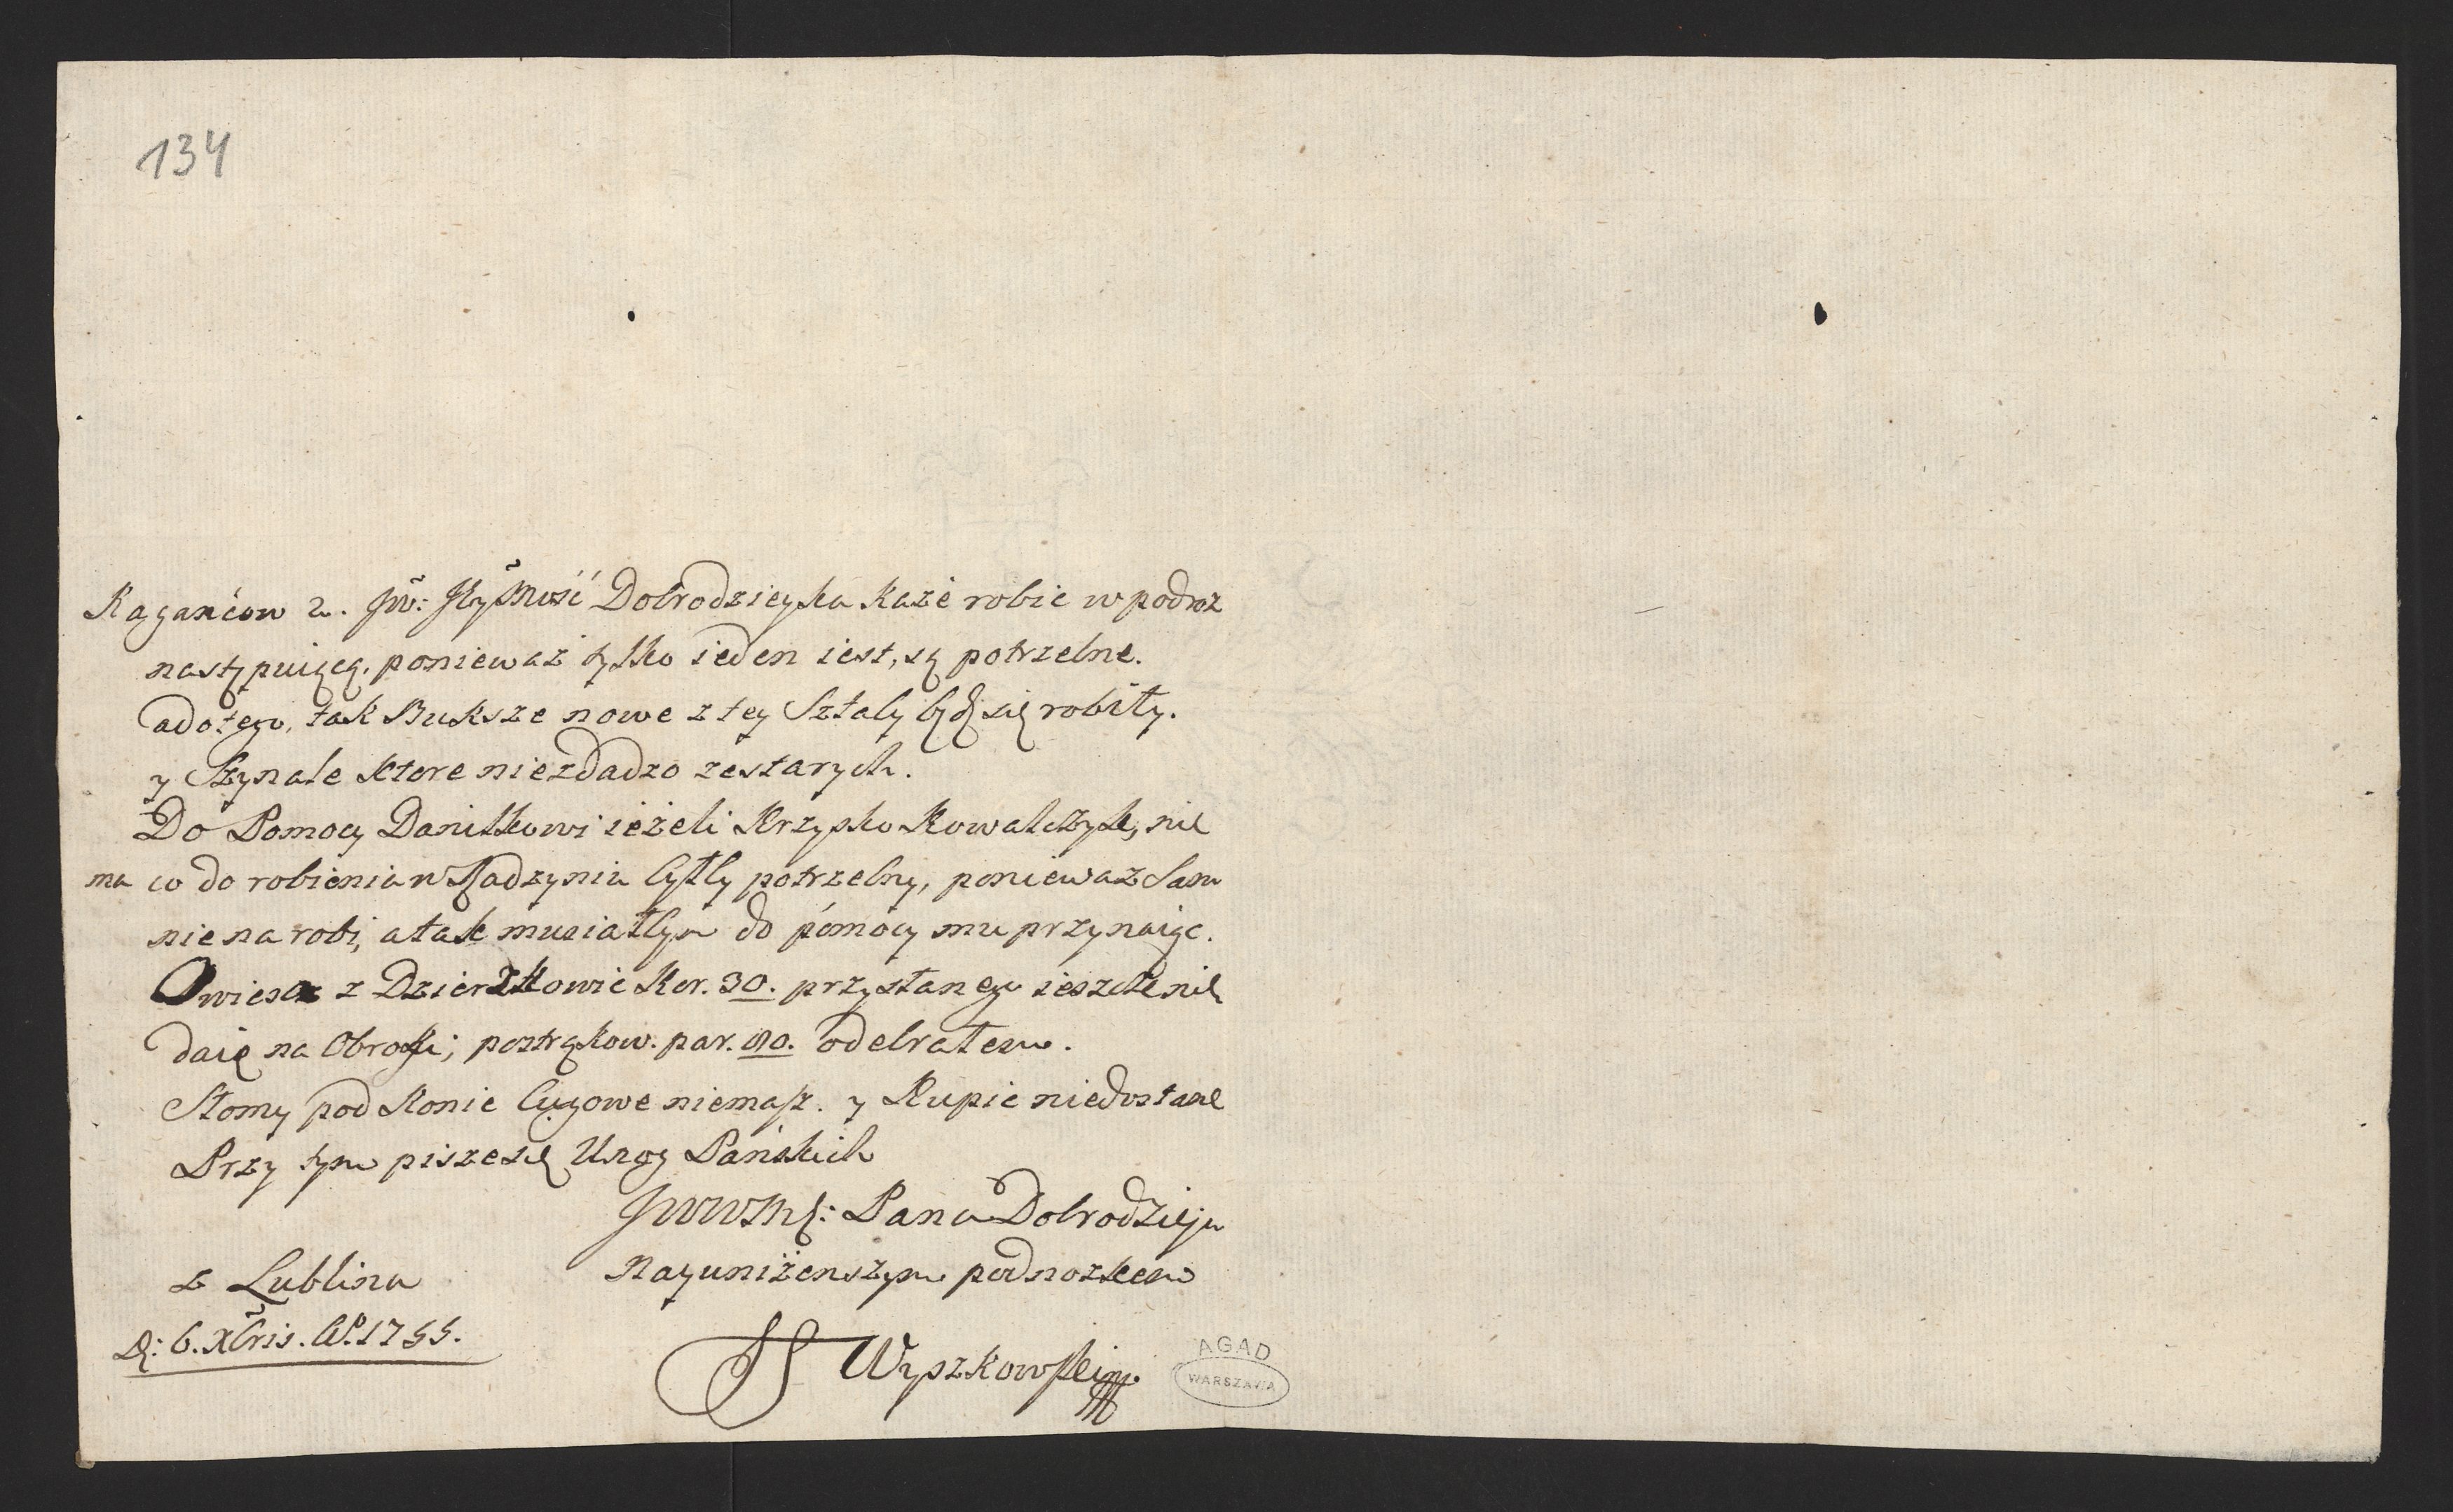 134
Kagańcow 2. JW: JEyMość Dobrodzieyka Każe robic w podroz
następuiącą. poniewaz tylko ieden iest, są potrzebne.
a do tego, tak Buksze nowe z tey Sztaby będą się robiły.
y Szynale ktore niezdadzo ze starych.
Do Pomocy Daniłkowi ieżeli Krzysko Kowalczyk, nie
ma co do robienia w Radzyniu byłby potrzebny, poniewaz Sam
nie narobi, a tak musiałbym do pomocy mu przynaiąc.
Owiesa z Dzierzkowic Kor. 30. przysłanego ieszcze nie
daię na Obroki; postrąkow. par. 90. odebrałem.
Słomy pod Konie Cugowe niemasz. y Kupic niedostane
Przy tym pisze się Nrog Pańskich
JWWMĘ: Pana Dobrodzieja
Nayuniżenszym podnozkiem
z Lublina
D: 6. Xbris. A°. 1755.
Wyszkowski
AGAD
WARSZAWA